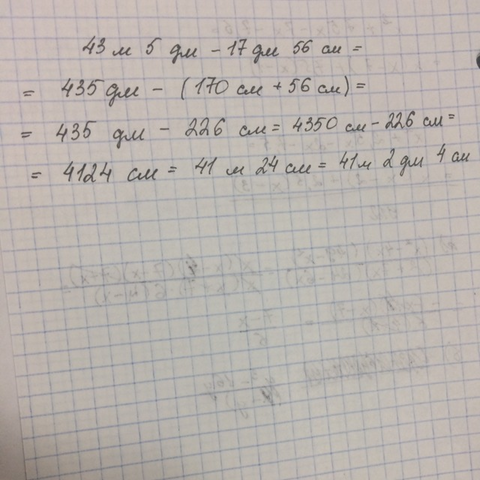 43 м 5 дм - 17 дм 56 см =
= 435 дм - (170 см + 56 см) =
= 435 дм - 226 см = 4350 см - 226 см =
= 4124 см = 41 м 24 см = 41 м 2 дм 4 см